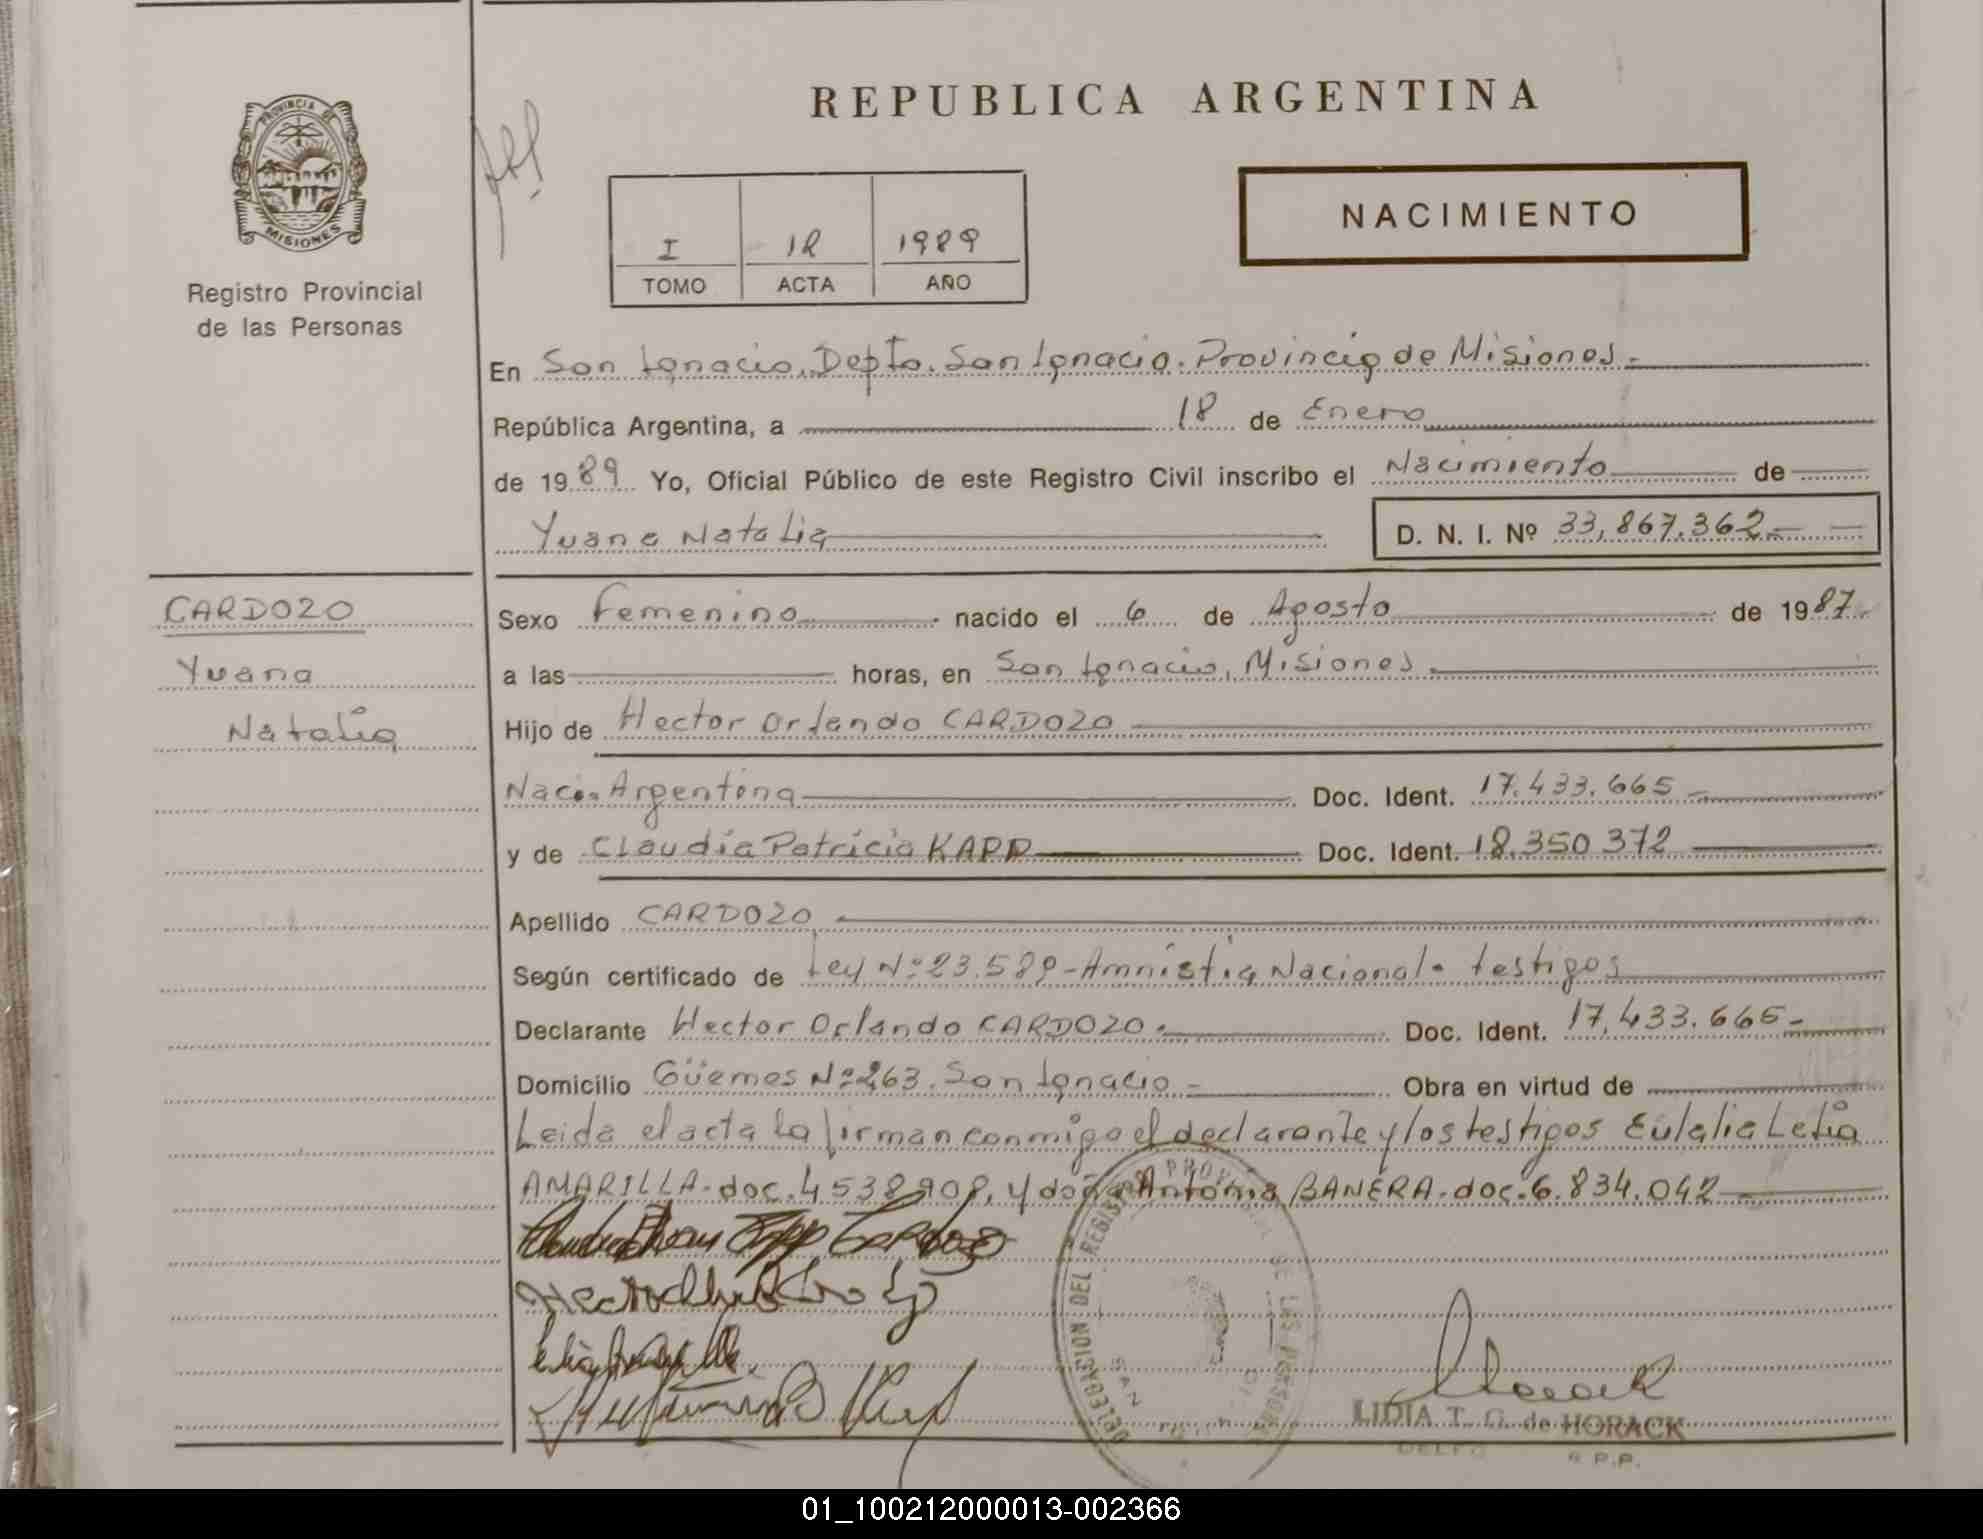 PROVINCIA DE
MISIONES
Registro Provincial
de las Personas
REPUBLICA ARGENTINA
I 12 1989
TOMO ACTA AÑO
NACIMIENTO
En San Ignacio, Depto. San Ignacio. Provincia de Misiones.-
República Argentina, a 18 de Enero
de 1989 Yo, Oficial Público de este Registro Civil inscribo el Nacimiento de
Yvana Natalia D. N. I. Nº 33,867.362.-
CARDOZO
Yvana
Natalia
Sexo Femenino nacido el 6 de Agosto de 1987.
a las horas, en San Ignacio, Misiones.
Hijo de Hector Orlando CARDOZO
Nac. Argentina Doc. Ident. 17.433.665
y de Claudia Patricia KAPP Doc. Ident. 18.350 372
Apellido CARDOZO
Según certificado de Ley Nº 23.589-Amnistia Nacional. testigos
Declarante Hector Orlando CARDOZO. Doc. Ident. 17.433.665-
Domicilio Güemes Nº 263. San Ignacio- Obra en virtud de
Leida el acta la firman conmigo el declarante y los testigos Eulalia Letia
AMARILLA-doc. 4538908, y doña Antonia BANERA-doc. 6.834.042
DELEGACION DEL REGISTRO PROVINCIAL DE LAS PERSONAS
SAN
LIDIA T. G. de HORACK
R.P.P.
01_100212000013-002366